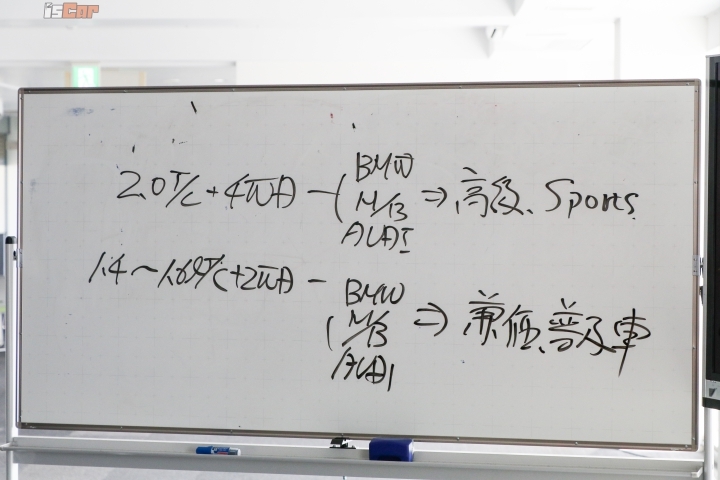 isCar
BMW
2.0T/C+4WD - ( M/B ⇒ 高級、Sports
AUDI
1.4~1.6ℓT/C+2WD - BMW
( M/B ⇒ 廉価、普及車
AUDI